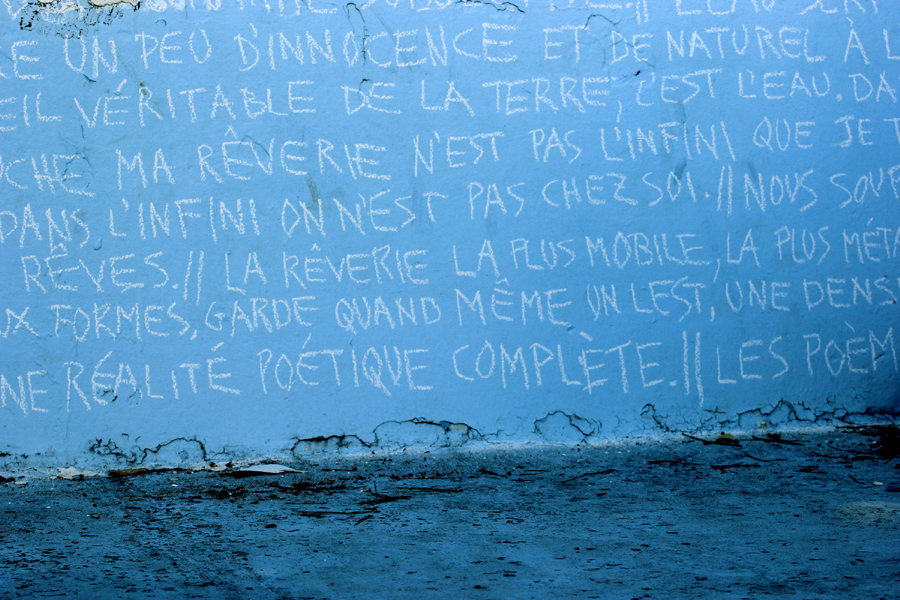 RE UN PEU D'INNOCENCE ET DE NATUREL À L
EIL VÉRITABLE DE LA TERRE, C'EST L'EAU. DA
CHE MA RÊVERIE N'EST PAS L'INFINI QUE JE T
DANS L'INFINI ON N'EST PAS CHEZ SOI. || NOUS SOUF
RÊVES. || LA RÊVERIE LA PLUS MOBILE, LA PLUS MÉTA
UX FORMES, GARDE QUAND MÊME UN LEST, UNE DENSI
NE RÉALITÉ POÉTIQUE COMPLÈTE. || LES POÈM